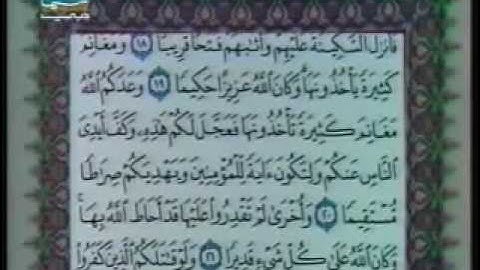 فَأَنزَلَ ٱلسَّكِينَةَ عَلَيْهِمْ وَأَثَٰبَهُمْ فَتْحًا قَرِيبًا ١٨ وَمَغَانِمَ
كَثِيرَةً يَأْخُذُونَهَا وَكَانَ ٱللَّهُ عَزِيزًا حَكِيمًا ١٩ وَعَدَكُمُ ٱللَّهُ
مَغَانِمَ كَثِيرَةً تَأْخُذُونَهَا فَعَجَّلَ لَكُمْ هَٰذِهِۦ وَكَفَّ أَيْدِىَ
ٱلنَّاسِ عَنكُمْ وَلِتَكُونَ ءَايَةً لِّلْمُؤْمِنِينَ وَيَهْدِيَكُمْ صِرَٰطًا
مُّسْتَقِيمًا ٢٠ وَأُخْرَىٰ لَمْ تَقْدِرُوا۟ عَلَيْهَا قَدْ أَحَاطَ ٱللَّهُ بِهَا
وَكَانَ ٱللَّهُ عَلَىٰ كُلِّ شَىْءٍ قَدِيرًا ٢١ وَلَوْ قَٰتَلَكُمُ ٱلَّذِينَ كَفَرُوا۟